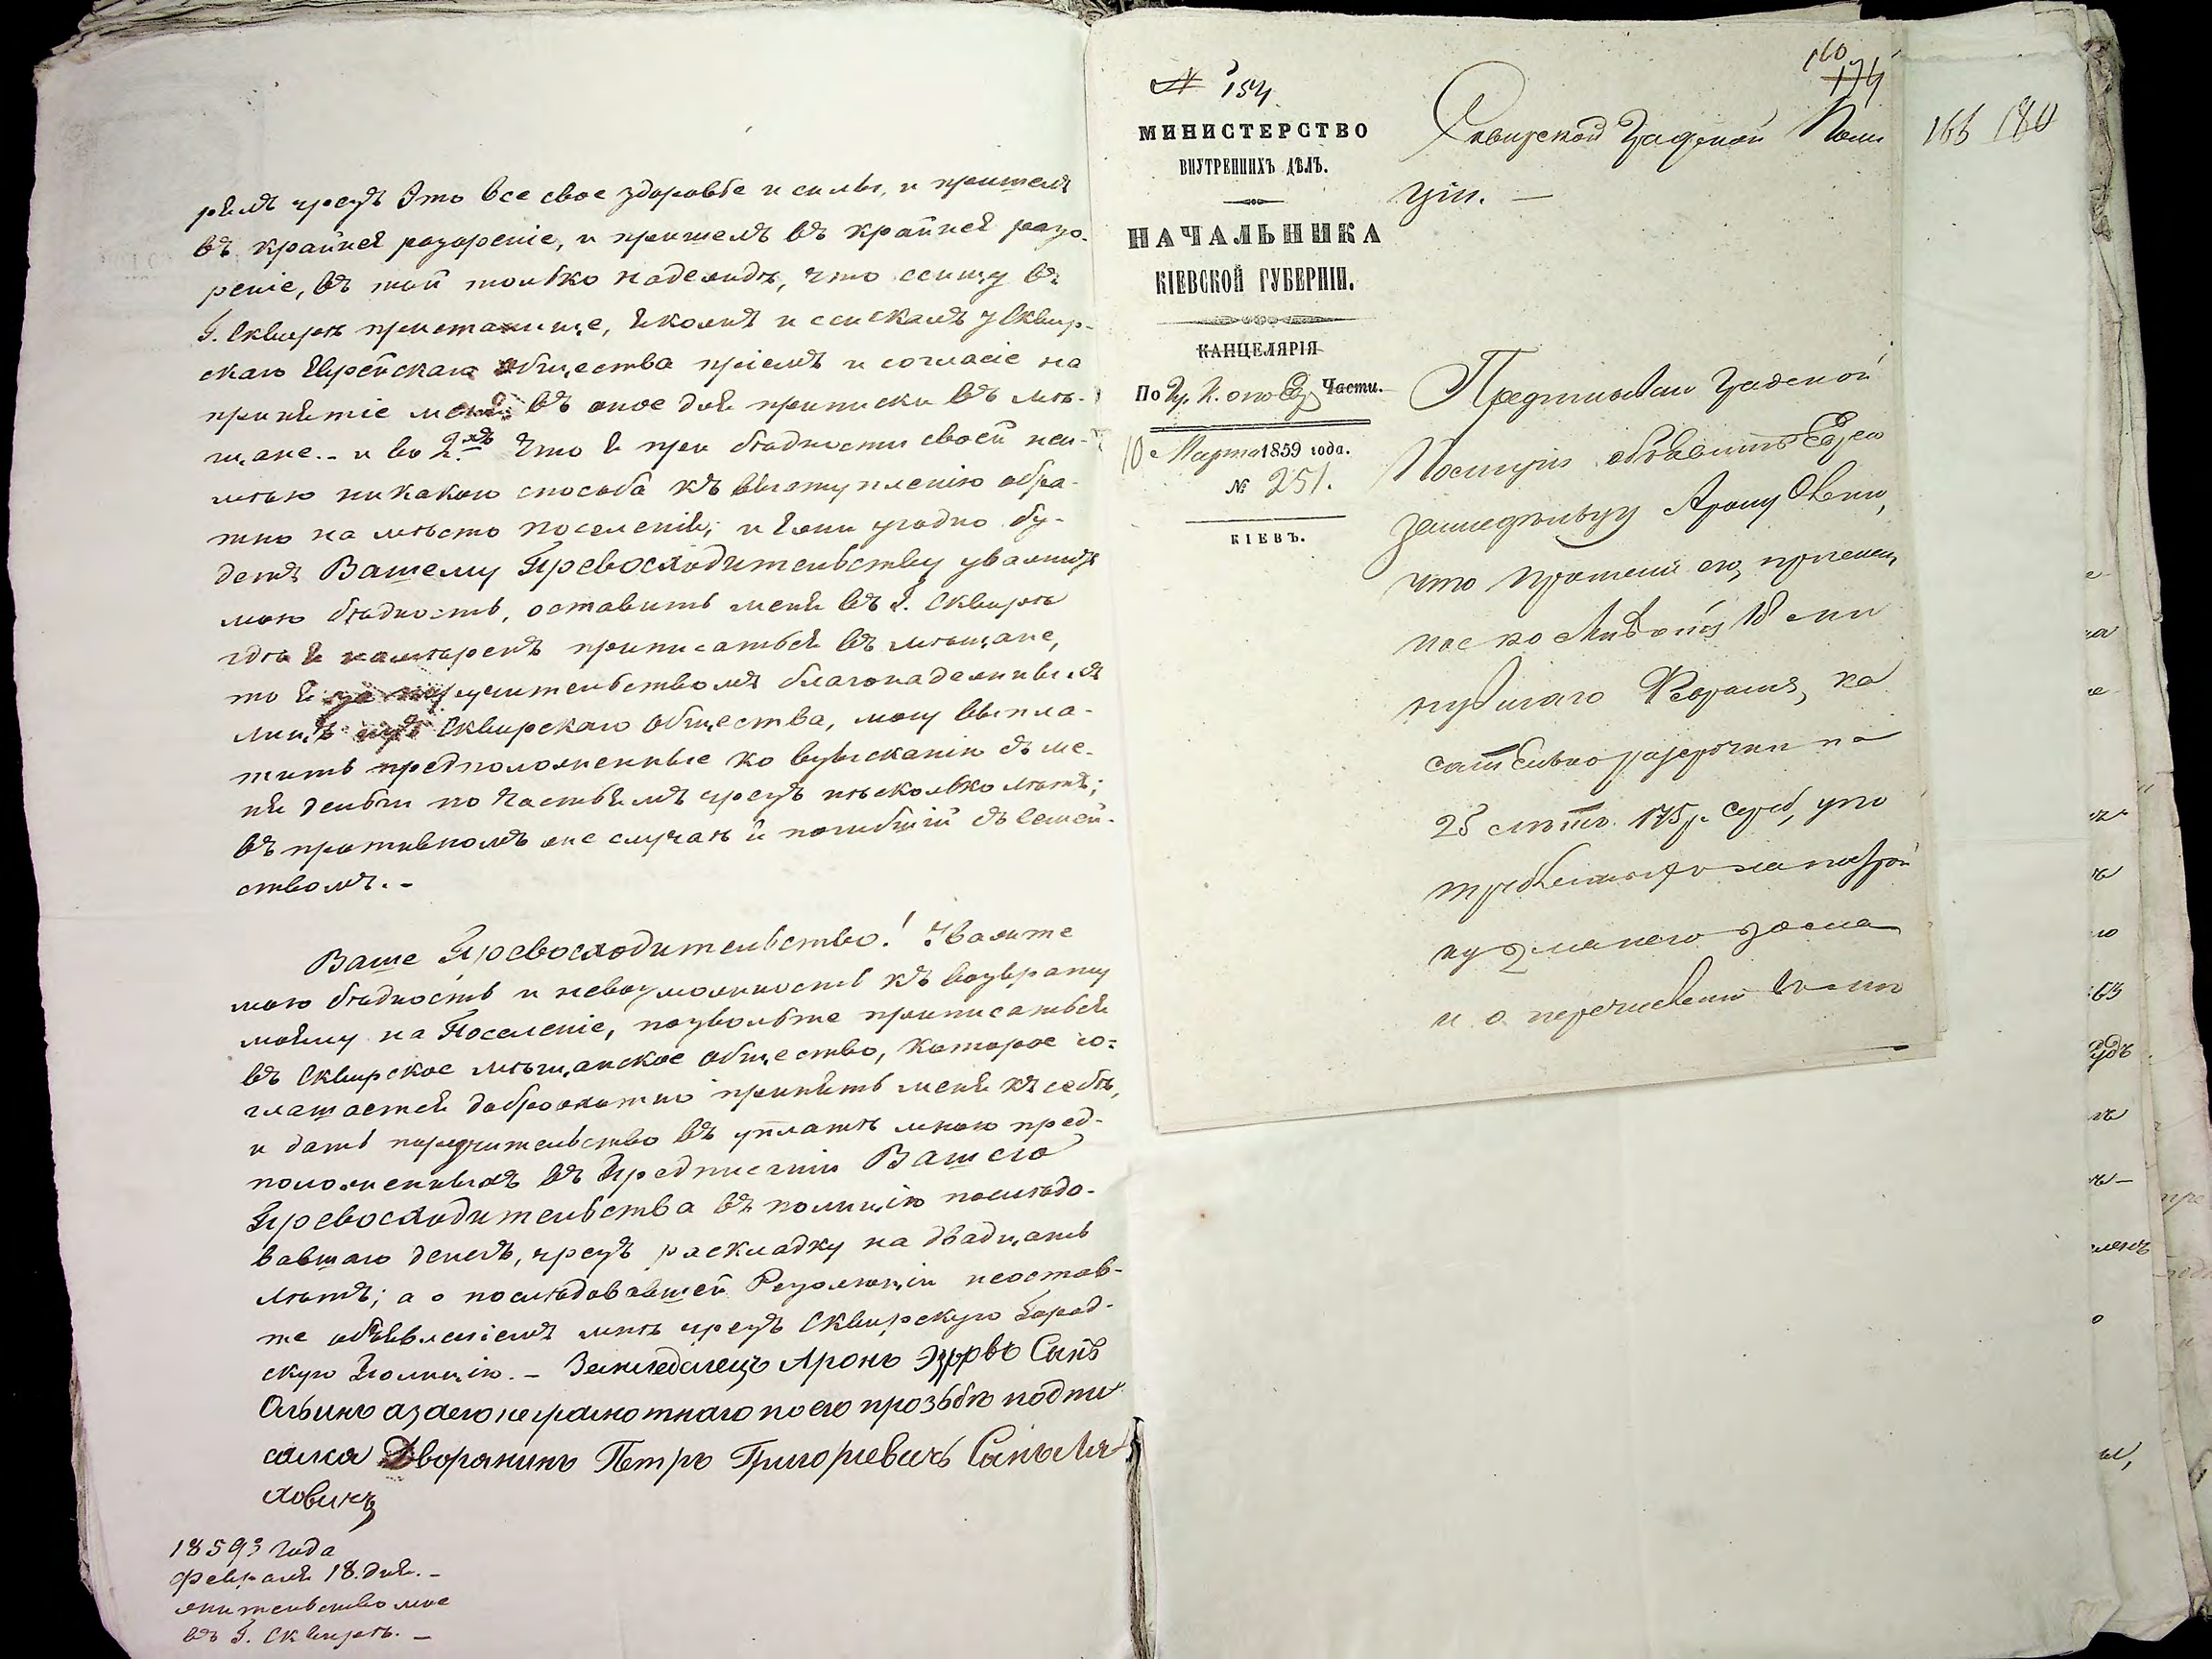 рялъ чрезъ Это все свое здоровье и силы, и пришелъ
въ крайнея разореніе, и пришелъ въ крайнея разо-
реніе, въ той только надеждѣ, что сыщу въ
Г. Сквирѣ пристанище, якожъ и сыскалъ у Сквир-
скаго Еврейскаго общества пріемъ и согласіе на
принятіе меня въ оное для приписки въ мѣ-
щане. - и во 2хъ Что я при бѣдности своей неи-
мѣю никакого способа къ выступленію обра-
тно на мѣсто поселенія; и если угодно бу-
детъ Вашему Превосходительству уважить
мою бѣдность, оставить меня въ Г. Сквирѣ
гдѣ я намѣренъ приписаться въ мѣщане,
то я за поручительствомъ благонадежныхъ
лицъ Сквирскаго общества, могу выпла-
тить предположенные ко взысканію съ ме-
ня деньги по частьямъ чрезъ нѣсколько лѣтъ;
въ противномъ же случаѣ я погибшій съ семей-
ствомъ. -
Ваше Превосходительство! Уважите
мою бѣдность и невозможность къ возврату
моему на Поселеніе, позвольте приписаться
въ Сквирское мѣщанское общество, которое со-
глашается доброохотно принять меня къ себѣ,
и дать поручительство въ уплатѣ мною пред-
положенныхъ въ Предписаніи Вашего
Превосходительства въ полицію послѣдо-
вавшаго денегъ, чрезъ раскладку на двадцать
лѣтъ; а о послѣдовавшей Резолюціи неостав-
те объявленіемъ мнѣ чрезъ Сквирскую Город-
скую Полицію. - Земледѣлецъ Аронъ Сынъ
неграмотнаго по его прозьбѣ подпи
салса Дворянинъ Петръ Григорьевичъ Сынъ
1859го года
Февраля 18. дня. -
жительство мое
въ Г. Сквирѣ. -
№ 154
160
174
166 180
МИНИСТЕРСТВО
ВНУТРЕННИХЪ ДѢЛЪ.
НАЧАЛЬНИКА
КІЕВСКОЙ ГУБЕРНІИ.
КАНЦЕЛЯРІЯ
По Части.
10 Марта 1859 года.
№ 251.
КІЕВЪ.
Сквирской Градской Поли
ціи. —
Предписываю Градской
Полиціи объявить Еврею
земледѣльцу Арону
что прошеніе его, прислан
ное ко мнѣ 18 ми
нувшаго Февраля, ка
сательно разсрочки на
25 лѣтъ 175 р. сереб, упо
требленныхъ на построй
ку для него дома
и о перечисленіи въ